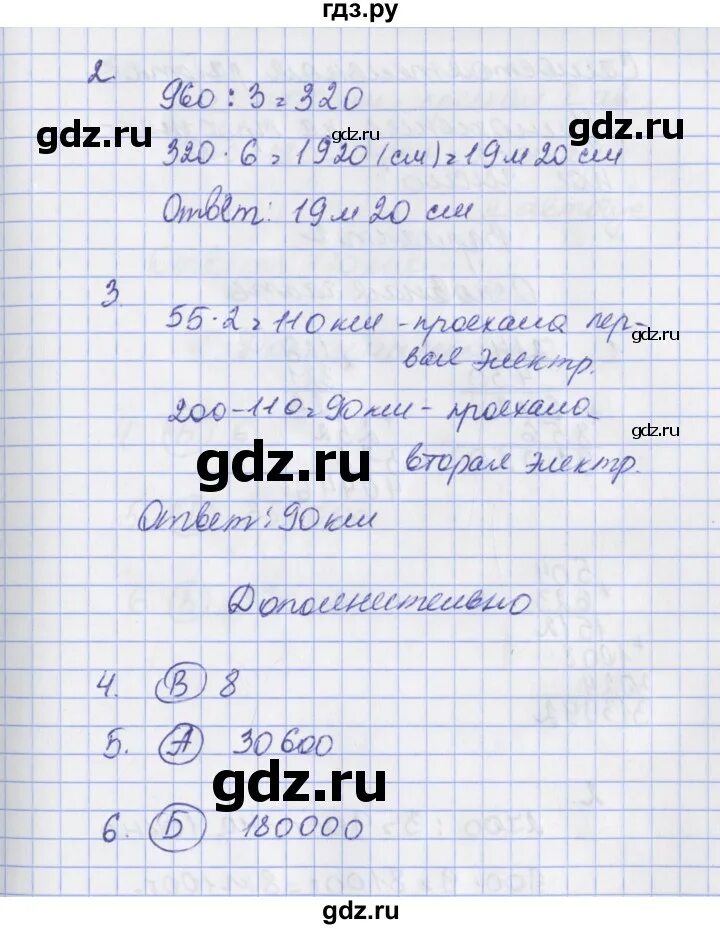 гдз.ру
2.
960 : 3 = 320
gdz.ru
gdz.ru
gdz.ru
320 · 6 = 1920 (см) = 19 м 20 см
Ответ: 19 м 20 см
3.
55 · 2 = 110 км - проехала пер-
gdz.ru
вая электр.
200 - 110 = 90 км - проехала
gdz.ru
gdz.ru
вторая электр.
Ответ: 90 км
Дополнительно
4. В 8
5. А 30 600
gdz.ru
6. Б 180000
gdz.ru